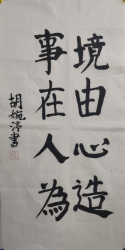 境由心造
事在人為
胡婉淳書